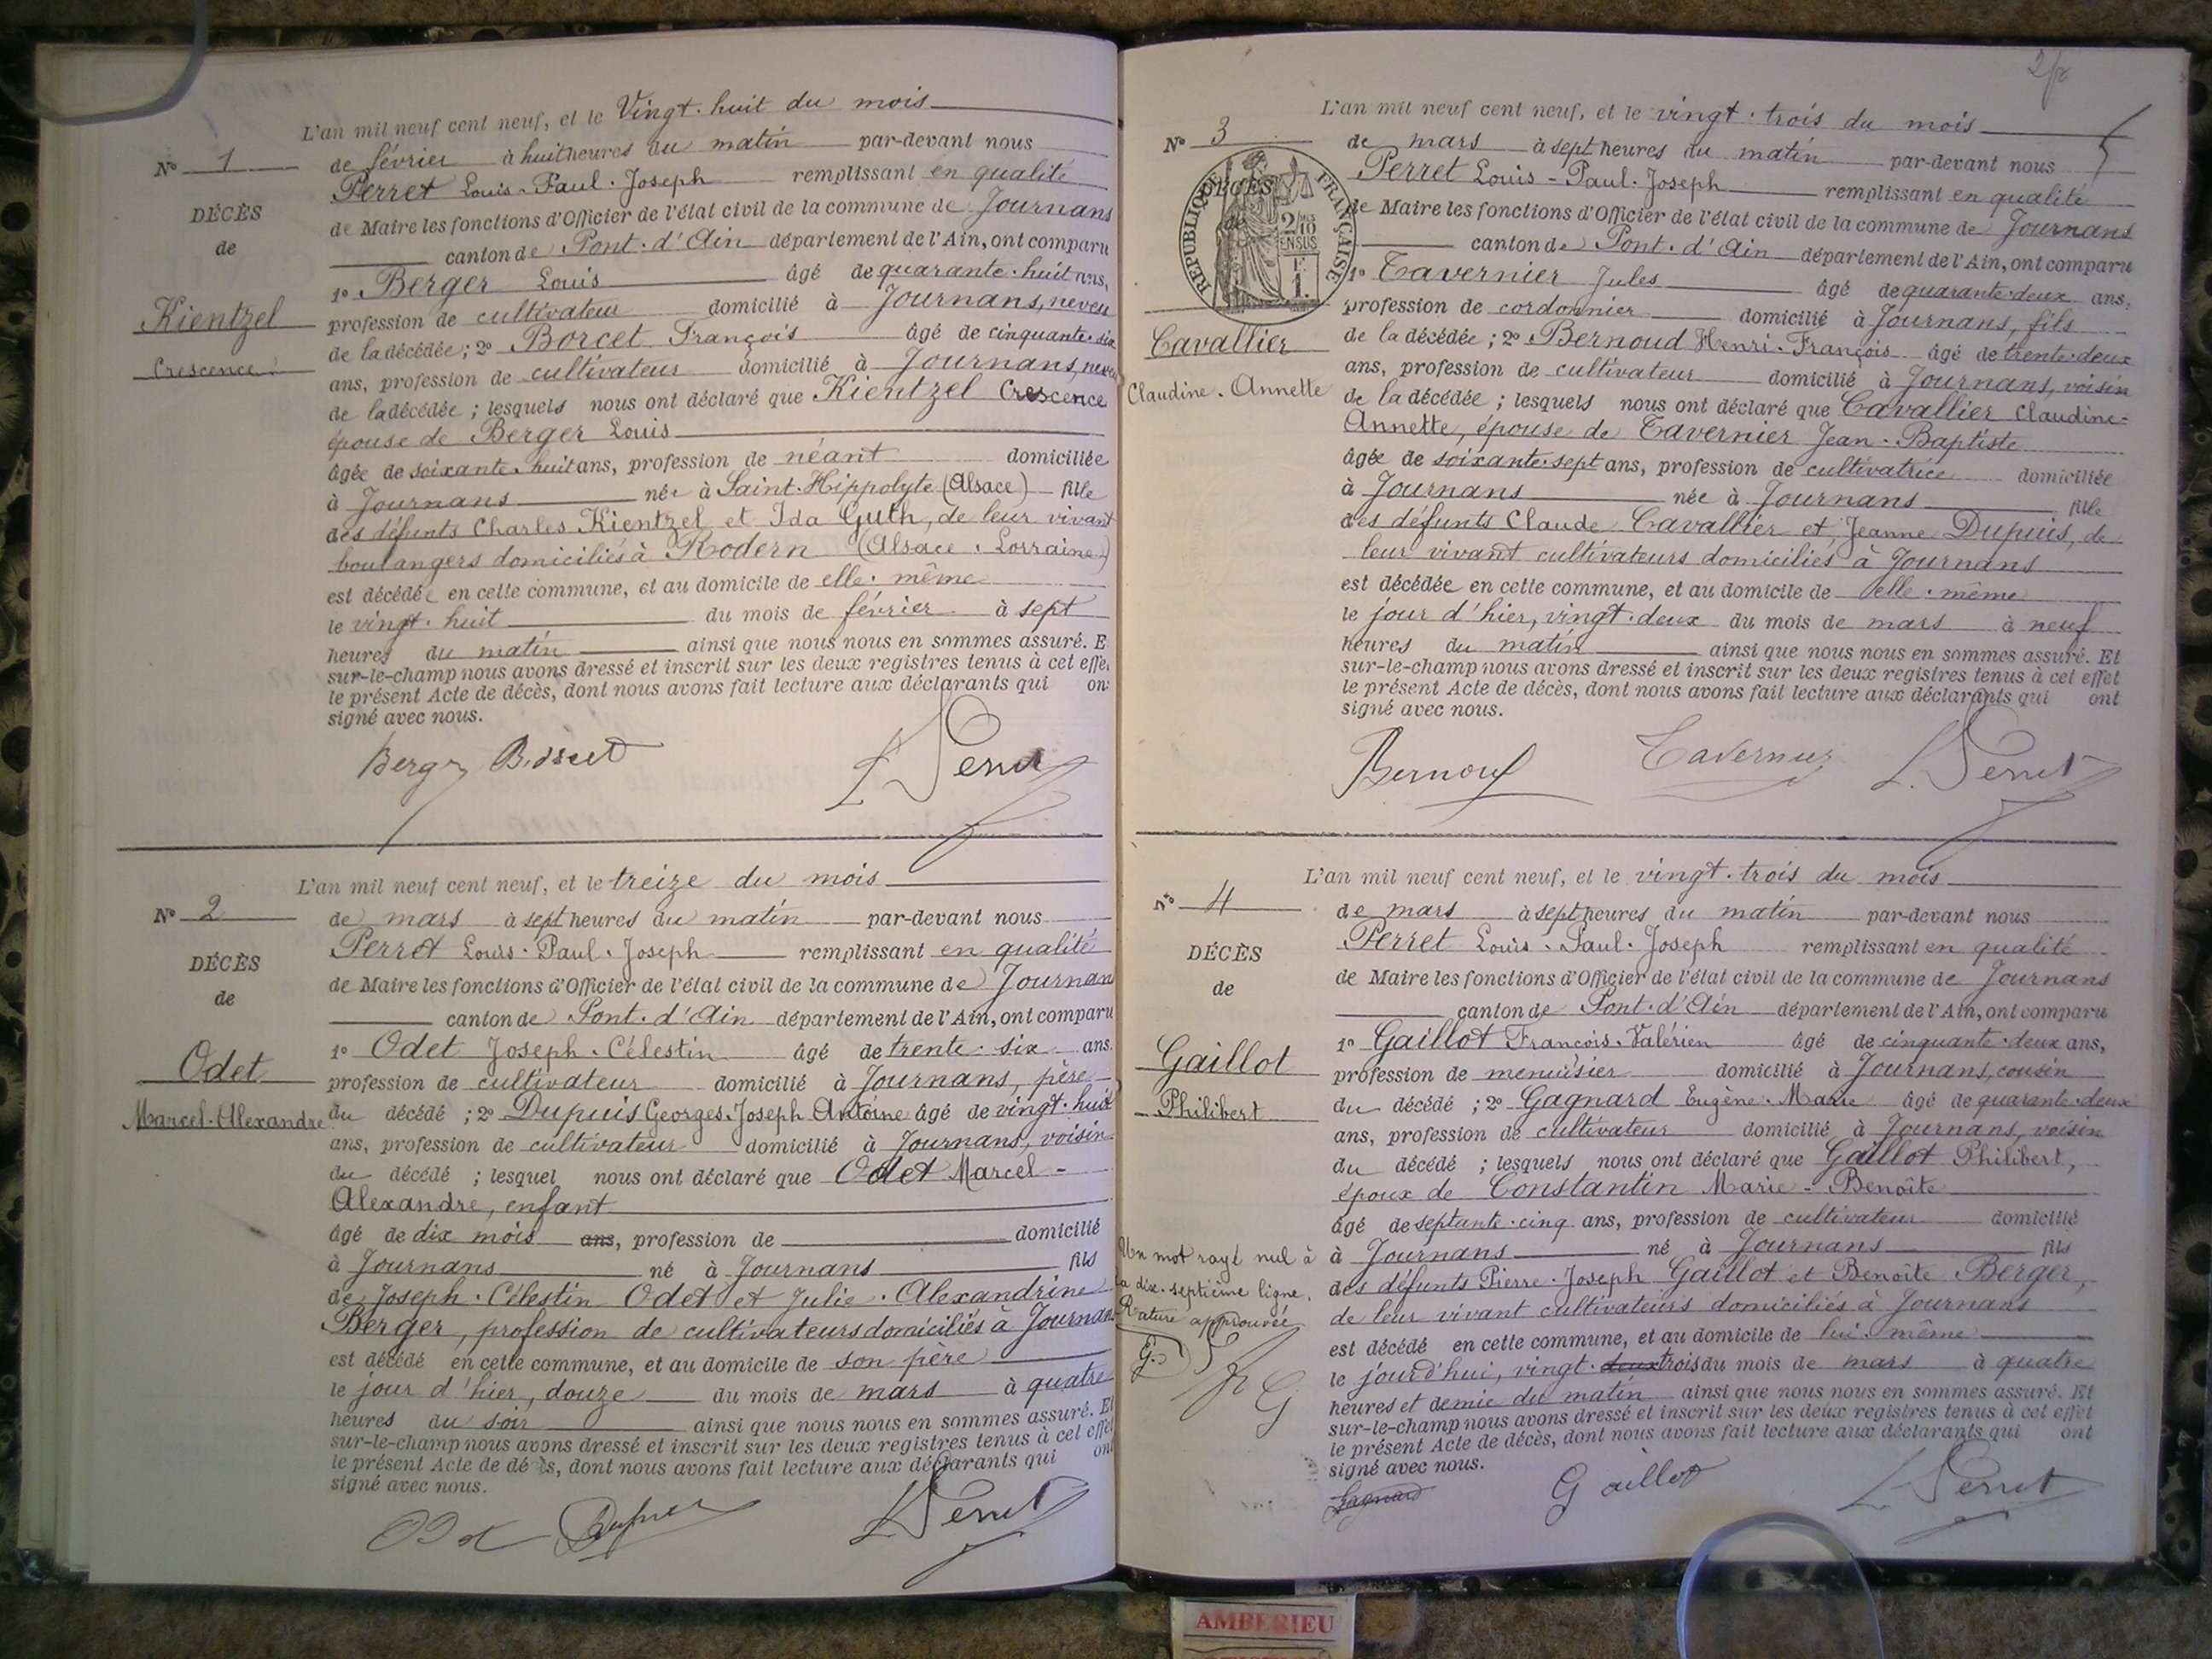 L'an mil neuf cent neuf, et le Vingt-huit du mois
N° 1
de février à huit heures du matin par-devant nous
Perret Louis-Paul-Joseph remplissant en qualité
DÉCÈS
de Maire les fonctions d'Officier de l'état civil de la commune de Journans
de
canton de Pont-d'Ain département de l'Ain, ont comparu
1° Berger Louis âgé de quarante-huit ans,
Kientzel
profession de cultivateur domicilié à Journans, neveu
de la décédée ; 2° Borcet François âgé de cinquante-six
Crescence
ans, profession de cultivateur domicilié à Journans, neveu
de la décédée ; lesquels nous ont déclaré que Kientzel Crescence
épouse de Berger Louis
âgée de soixante-huit ans, profession de néant domiciliée
à Journans née à Saint-Hippolyte (Alsace) fille
des défunts Charles Kientzel et Ida Guth, de leur vivant
boulangers domiciliés à Rodern (Alsace-Lorraine)
est décédée en cette commune, et au domicile de elle-même
le vingt-huit du mois de février à sept
heures du matin ainsi que nous nous en sommes assuré. E
sur-le-champ nous avons dressé et inscrit sur les deux registres tenus à cet effet
le présent Acte de décès, dont nous avons fait lecture aux déclarants qui ont
signé avec nous.
Berger L Perret
L'an mil neuf cent neuf, et le treize du mois
N° 2
de mars à sept heures du matin par-devant nous
Perret Louis-Paul-Joseph remplissant en qualité
DÉCÈS
de Maire les fonctions d'Officier de l'état civil de la commune de Journan
de
canton de Pont-d'Ain département de l'Ain, ont comparu
1° Odet Joseph-Célestin âgé de trente-six ans.
Odet
profession de cultivateur domicilié à Journans, père
Marcel-Alexandre
du décédé ; 2° Dupuis Georges-Joseph Antoine âgé de vingt-huit
ans, profession de cultivateur domicilié à Journans, voisin
du décédé ; lesquel nous ont déclaré que Odet Marcel-
Alexandre, enfant
âgé de dix mois ans, profession de domicilié
à Journans né à Journans fils
de Joseph-Célestin Odet et Julie-Alexandrine
Berger, profession de cultivateurs domiciliés à Journan
est décédé en cette commune, et au domicile de son père
le jour d'hier, douze du mois de mars à quatre
heures du soir ainsi que nous nous en sommes assuré. Et
sur-le-champ nous avons dressé et inscrit sur les deux registres tenus à cet effet
le présent Acte de décès, dont nous avons fait lecture aux déclarants qui ont
signé avec nous.
Odet Dupuis L Perret
L'an mil neuf cent neuf, et le vingt-trois du mois
N° 3
de mars à sept heures du matin par-devant nous
Perret Louis-Paul-Joseph remplissant en qualité
DÉCÈS
RÉPUBLIQUE FRANÇAISE
2/10 EN SUS
1 F.
de Maire les fonctions d'Officier de l'état civil de la commune de Journans
canton de Pont-d'Ain département de l'Ain, ont comparu
1° Tavernier Jules âgé de quarante-deux ans,
profession de cordonnier domicilié à Journans, fils
Cavallier
de la décédée ; 2° Bernoud Henri-François âgé de trente-deux
Claudine-Annette
ans, profession de cultivateur domicilié à Journans, voisin
de la décédée ; lesquels nous ont déclaré que Cavallier Claudine-
Annette, épouse de Tavernier Jean-Baptiste
âgée de soixante-sept ans, profession de cultivatrice domiciliée
à Journans née à Journans fille
des défunts Claude Cavallier et Jeanne Dupuis, de
leur vivant cultivateurs domiciliés à Journans
est décédée en cette commune, et au domicile de elle-même
le jour d'hier, vingt-deux du mois de mars à neuf
heures du matin ainsi que nous nous en sommes assuré. Et
sur-le-champ nous avons dressé et inscrit sur les deux registres tenus à cet effet
le présent Acte de décès, dont nous avons fait lecture aux déclarants qui ont
signé avec nous.
Bernoud Tavernier L. Perret
L'an mil neuf cent neuf, et le vingt-trois du mois
N° 4
de mars à sept heures du matin par-devant nous
Perret Louis-Paul-Joseph remplissant en qualité
DÉCÈS
de Maire les fonctions d'Officier de l'état civil de la commune de Journans
de
canton de Pont-d'Ain département de l'Ain, ont comparu
1° Gaillot François-Valérien âgé de cinquante-deux ans,
Gaillot
profession de menuisier domicilié à Journans, cousin
Philibert
du décédé ; 2° Gagnard Eugène-Marie âgé de quarante-deux
ans, profession de cultivateur domicilié à Journans, voisin
du décédé ; lesquels nous ont déclaré que Gaillot Philibert,
époux de Constantin Marie-Benoîte
âgé de septante-cinq ans, profession de cultivateur domicilié
à Journans né à Journans fils
des défunts Pierre-Joseph Gaillot et Benoîte Berger,
de leur vivant cultivateurs domiciliés à Journans
est décédé en cette commune, et au domicile de lui-même
le jourd'hui, vingt-deux trois du mois de mars à quatre
heures et demie du matin ainsi que nous nous en sommes assuré. Et
sur-le-champ nous avons dressé et inscrit sur les deux registres tenus à cet effet
le présent Acte de décès, dont nous avons fait lecture aux déclarants qui ont
signé avec nous.
Un mot rayé nul à
la dix-septième ligne.
Rature approuvée
Gagnard Gaillot L Perret
AMBERIEU